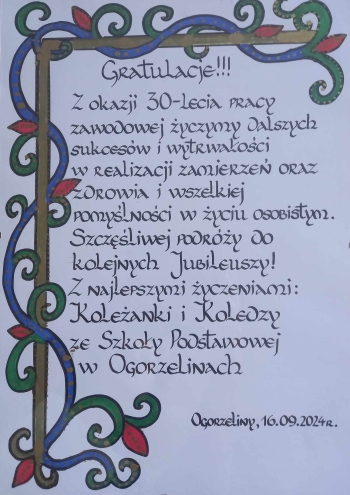 Gratulacje!!!
Z okazji 30-lecia pracy
zawodowej życzymy dalszych
sukcesów i wytrwałości
w realizacji zamierzeń oraz
zdrowia i wszelkiej
pomyślności w życiu osobistym.
Szczęśliwej podróży do
kolejnych Jubileuszy!
Z najlepszymi życzeniami:
Koleżanki i Koledzy
ze Szkoły Podstawowej
w Ogorzelinach
Ogorzeliny, 16.09.2024r.